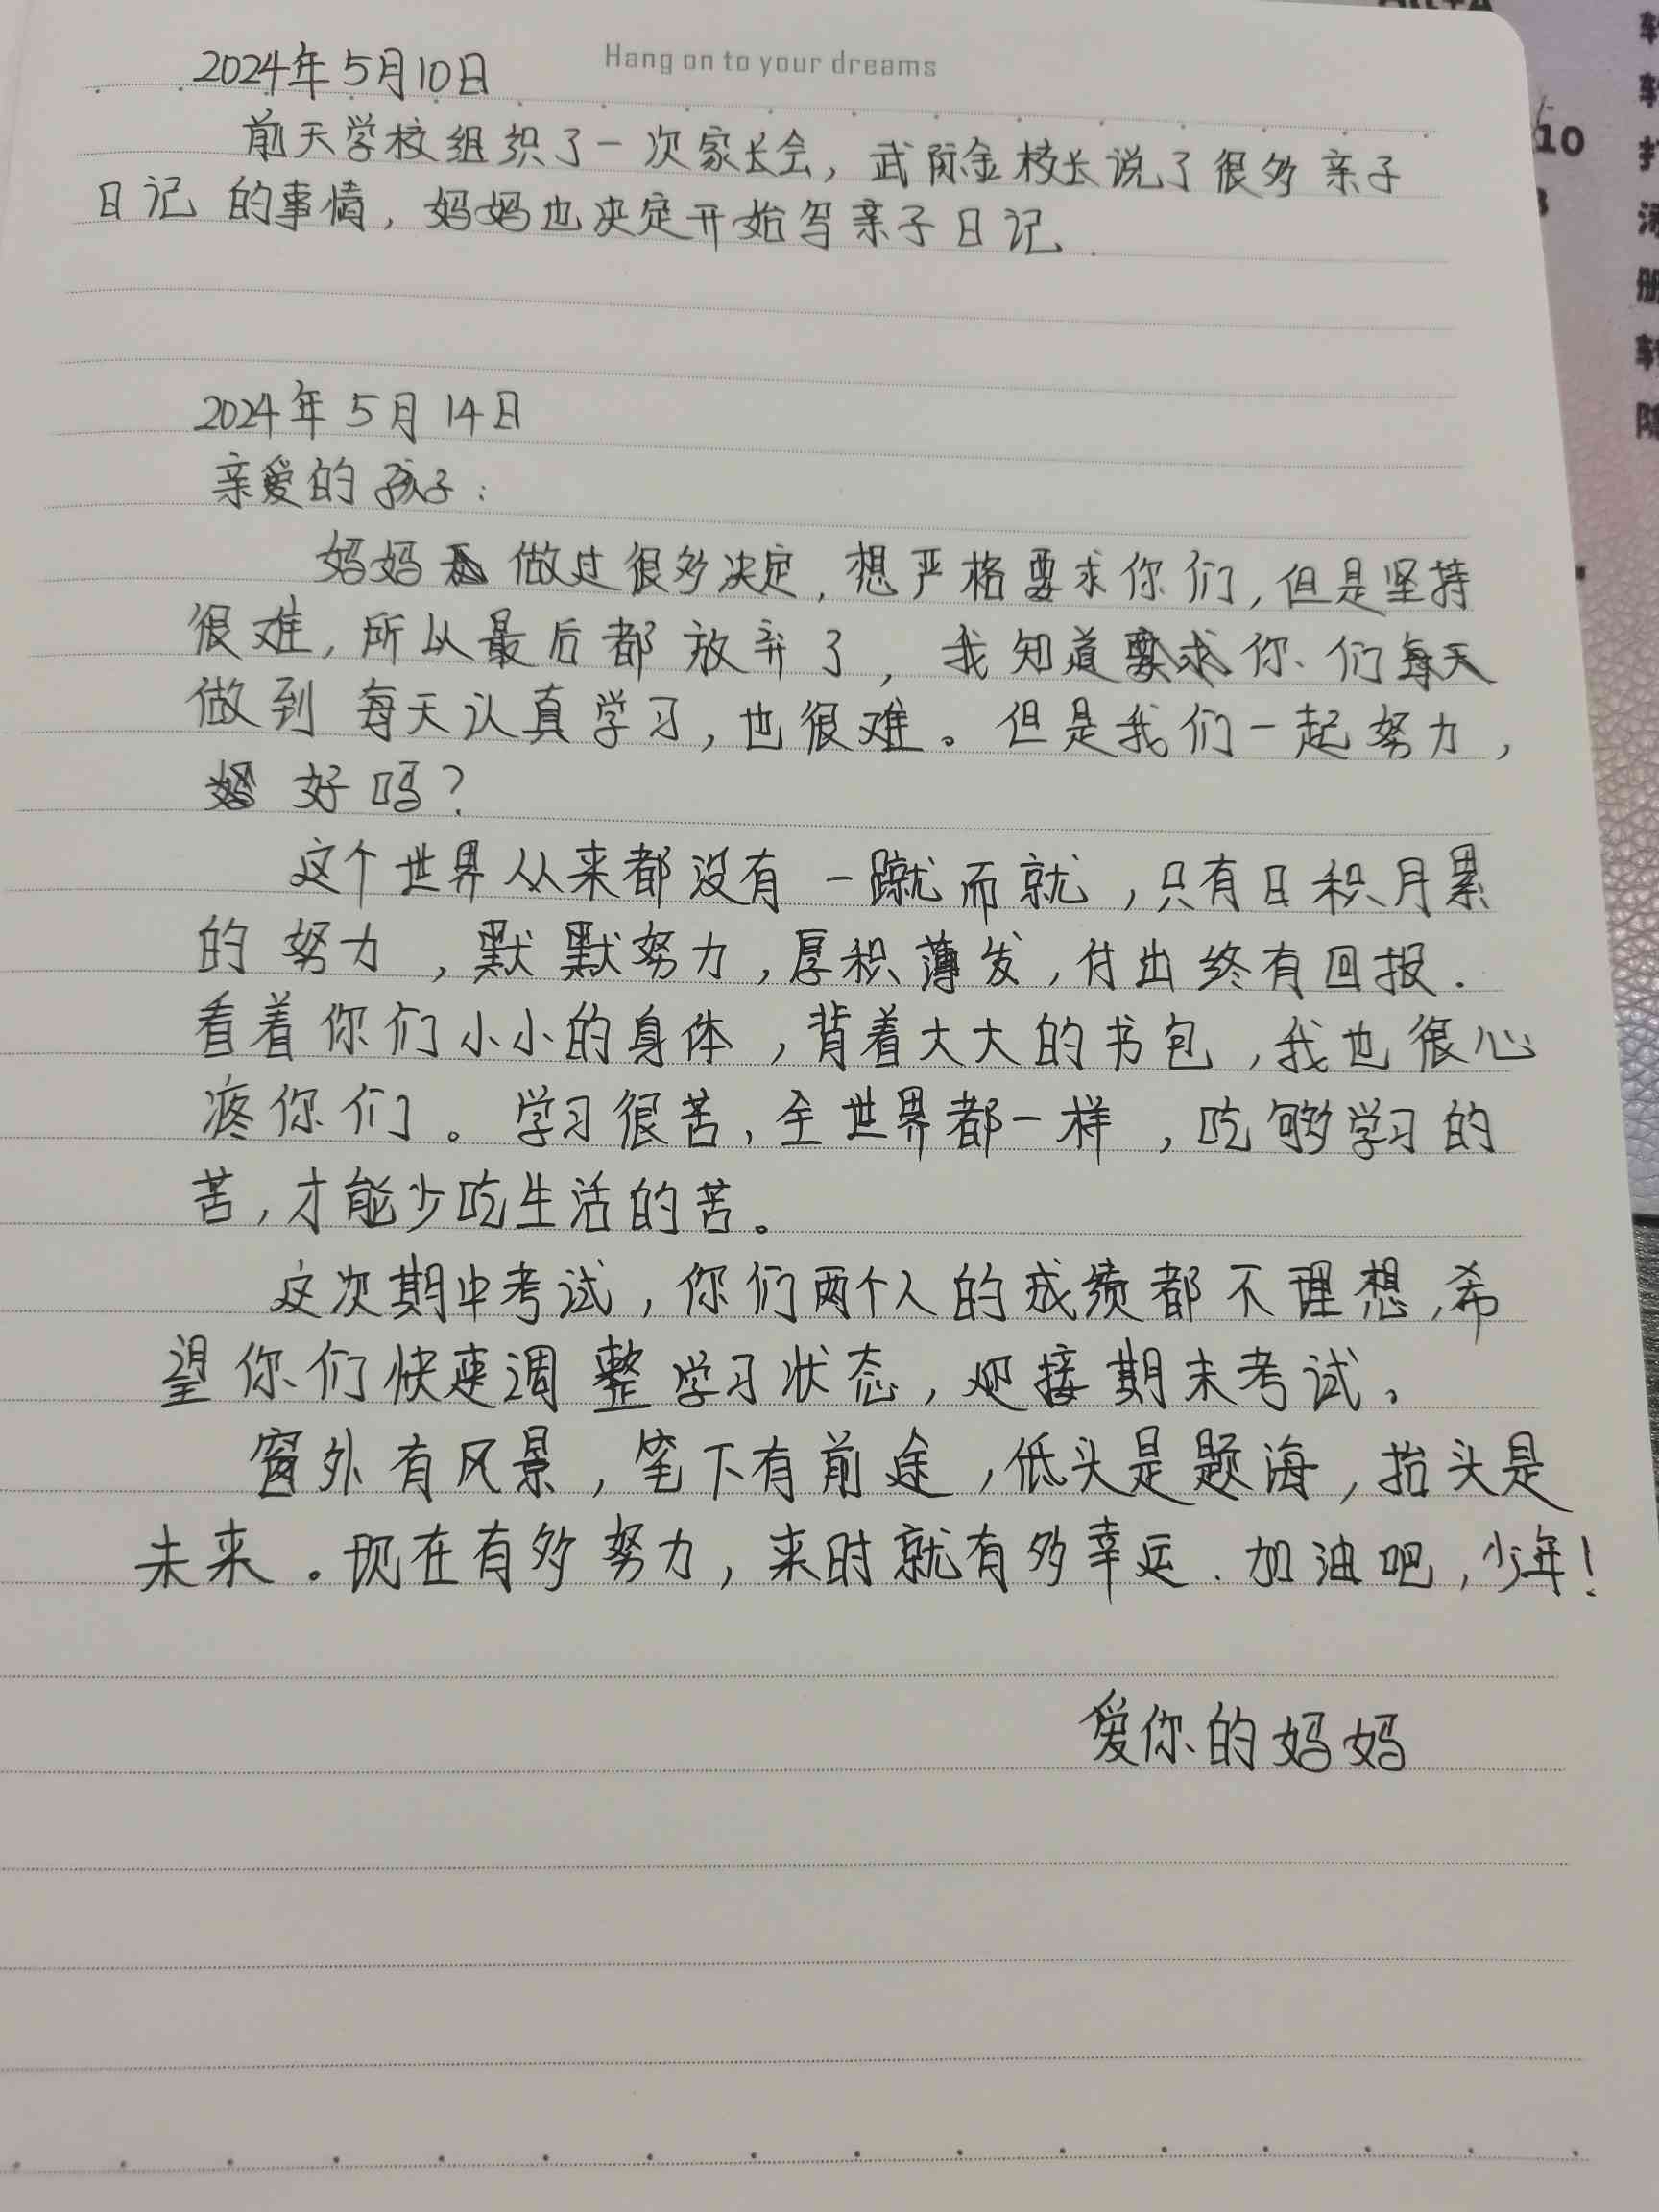 Hang on to your dreams
2024年5月10日
前天学校组织了一次家长会，武际金校长说了很多亲子
日记的事情，妈妈也决定开始写亲子日记.
2024年5月14日
亲爱的孩子：
妈妈做过很多决定，想严格要求你们，但是坚持
很难，所以最后都放弃了，我知道要求你们每天
做到每天认真学习，也很难。但是我们一起努力，
好吗？
这个世界从来都没有一蹴而就，只有日积月累
的努力，默默努力，厚积薄发，付出终有回报.
看着你们小小的身体，背着大大的书包，我也很心
疼你们。学习很苦，全世界都一样，吃够学习的
苦，才能少吃生活的苦。
这次期中考试，你们两个人的成绩都不理想，希
望你们快速调整学习状态，迎接期末考试。
窗外有风景，笔下有前途，低头是题海，抬头是
未来。现在有多努力，来时就有多幸运.加油吧，少年！
爱你的妈妈
10